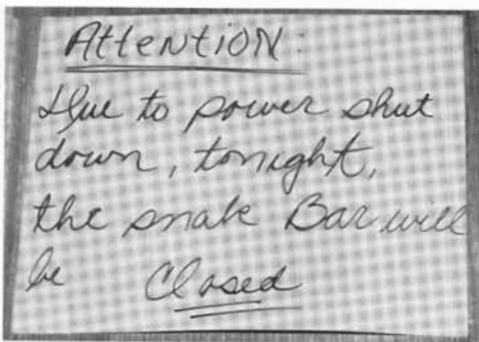 Attention:
Due to power shut
down, tonight,
the snake Bar will
be Closed